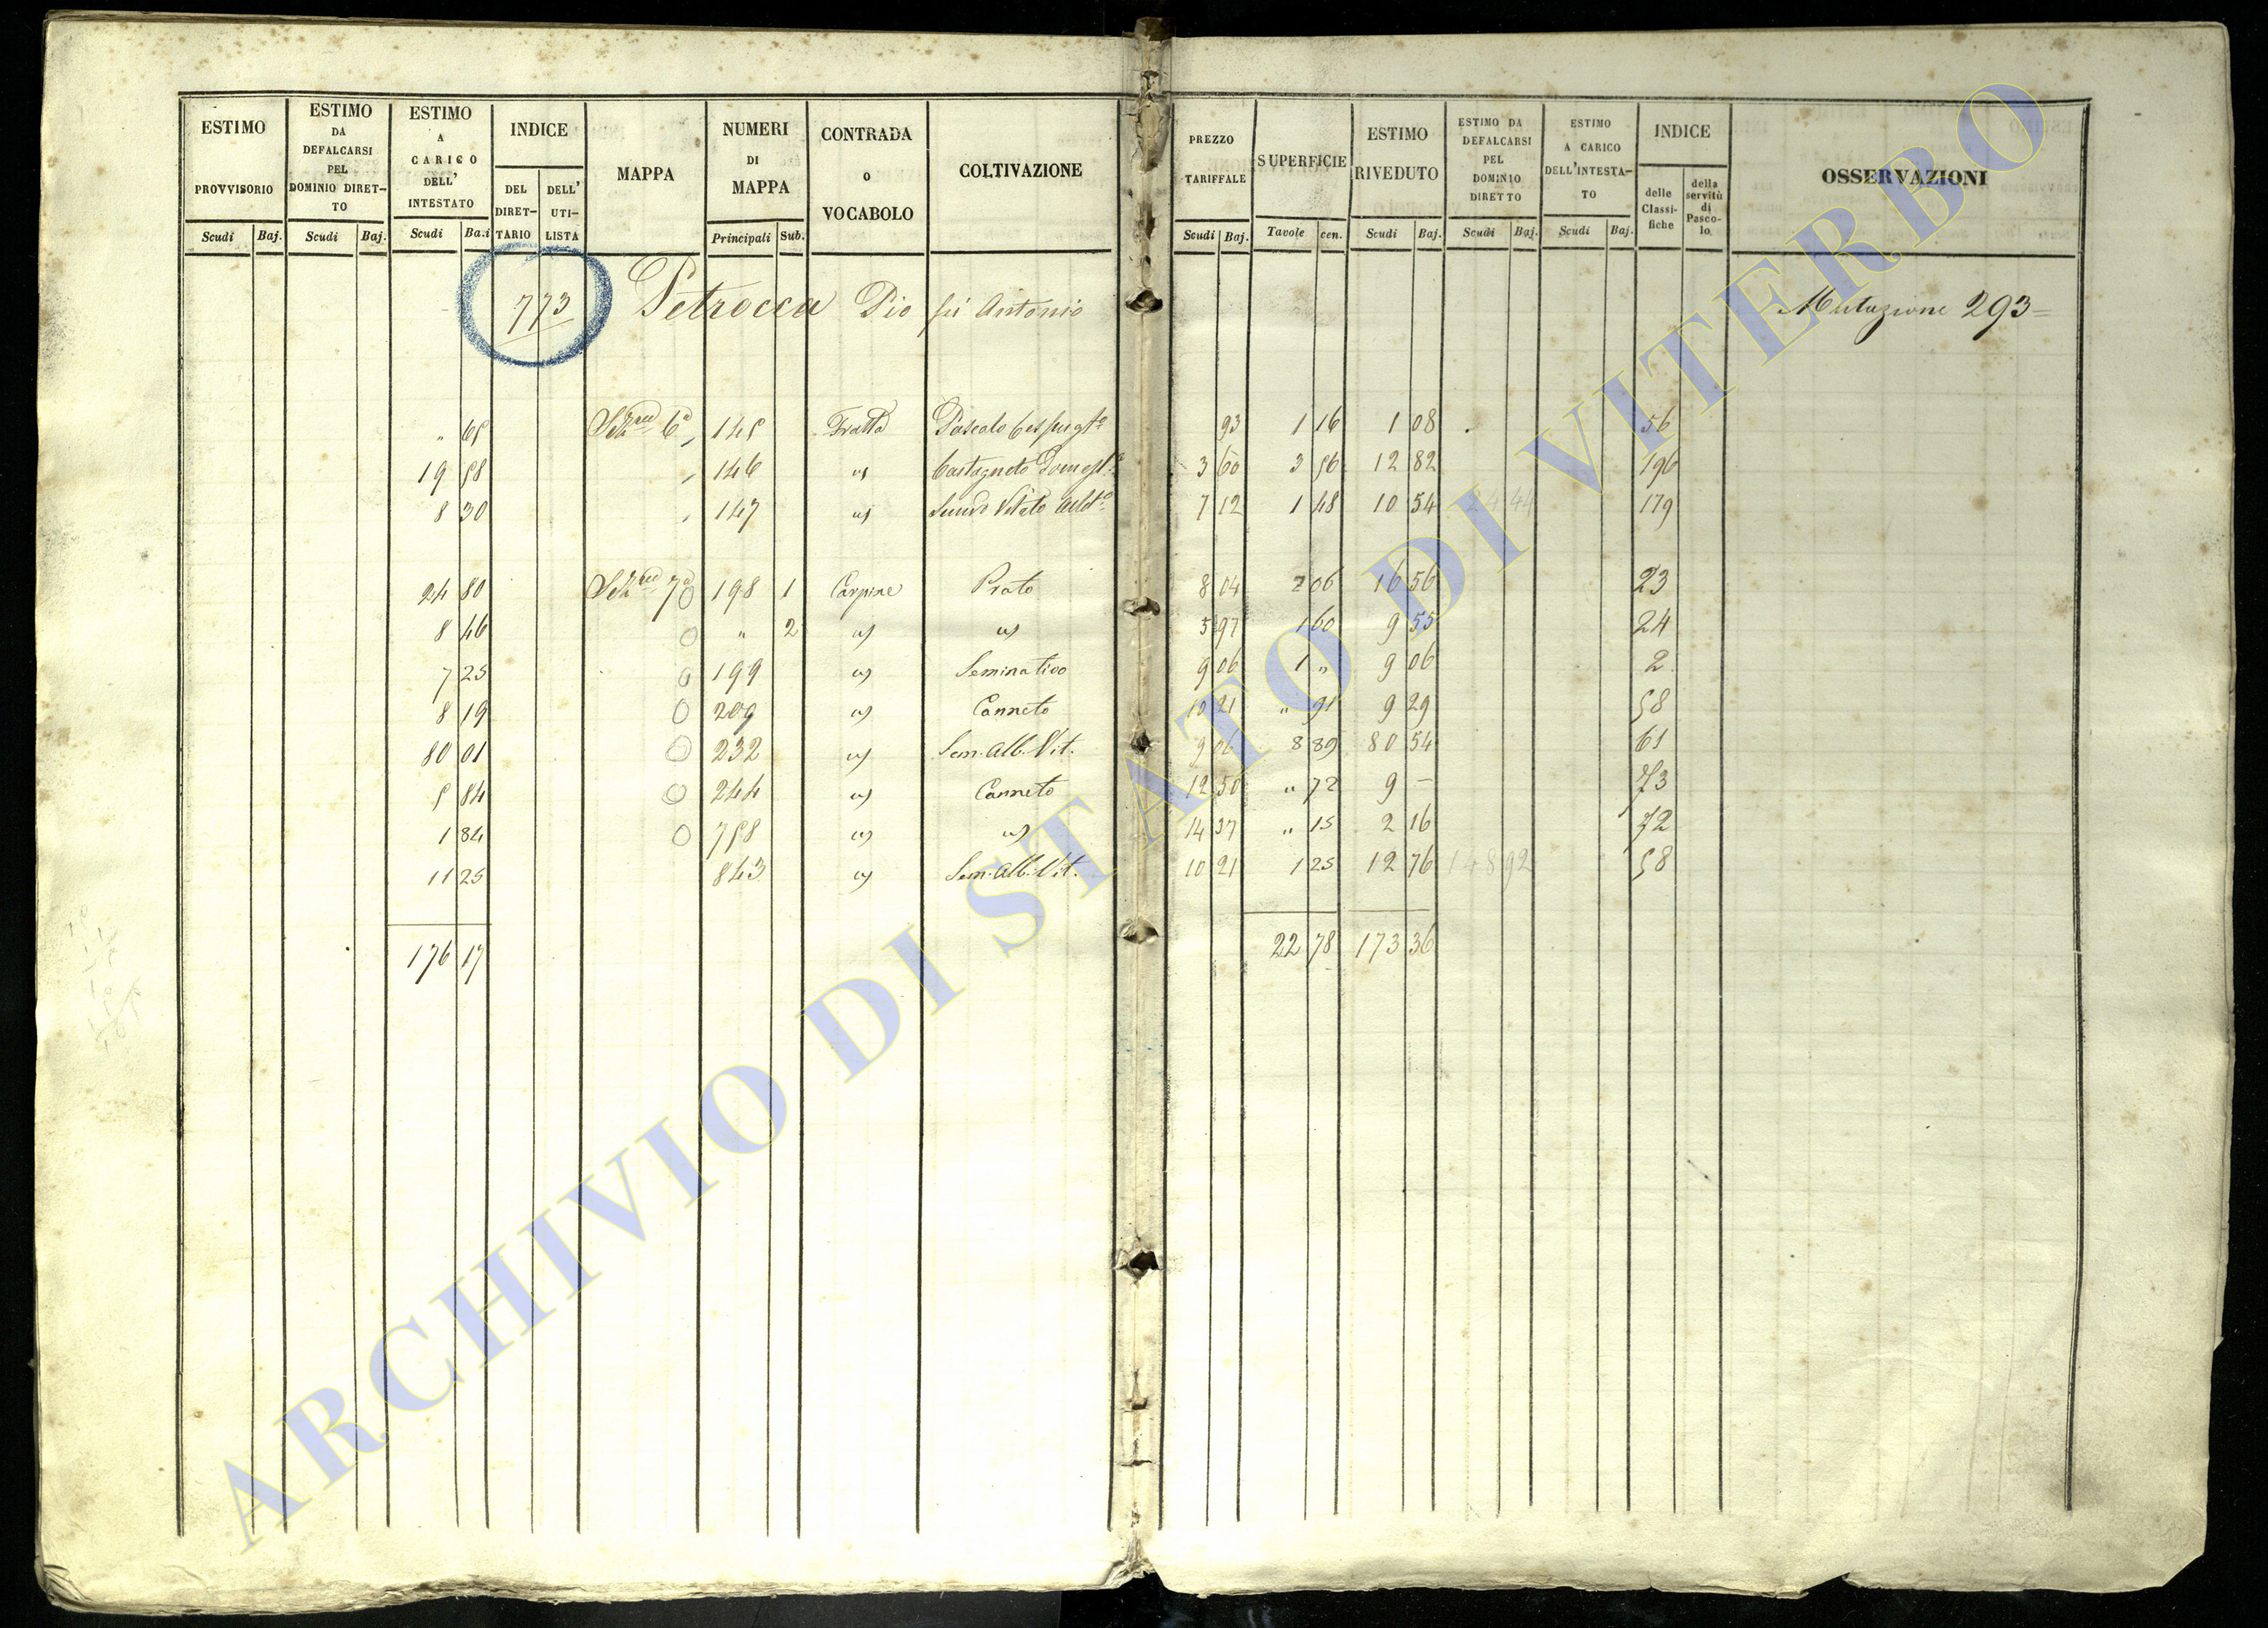 ESTIMO PROVVISORIO | ESTIMO DA DEFALCARSI PEL DOMINIO DIRET-TO | ESTIMO A CARICO DELL' INTESTATO | INDICE DEL DIRET-TARIO | DELL' UTI-LISTA | MAPPA | NUMERI DI MAPPA | CONTRADA O VOCABOLO | COLTIVAZIONE | PREZZO TARIFFALE | SUPERFICIE | ESTIMO RIVEDUTO | ESTIMO DA DEFALCARSI PEL DOMINIO DIRETTO | ESTIMO A CARICO DELL'INTESTA-TO | INDICE delle Classi-fiche | della servitù di Pasco-lo | OSSERVAZIONI
Scudi Baj. Scudi Baj. Scudi Baj Principali Sub. Scudi Baj. Tavole cen. Scudi Baj. Scudi Baj. Scudi Baj.
773 Petrocca Pio fu Antonio Mutazione 293
" 65 Sez 6a 145 Fratta Pascolo Cespugto 93 1 16 1 08 56
19 58 146 " Castagneto Domest. 3 60 3 56 12 82 196
8 30 147 " Vitato 7 12 1 48 10 54 24 44 179
24 80 Sez 7a 198 1 Carpine Prato 8 04 2 06 16 56 23
8 46 " 2 " " 5 97 1 60 9 55 24
7 25 199 " Seminativo 9 06 1 " 9 06 2
8 19 209 " Canneto 10 21 " 91 9 29 58
80 01 232 " Sem. Alb. Vit. 9 06 8 89 80 54 61
5 84 244 " Canneto 12 50 " 72 9 – 73
1 84 758 " " 14 37 " 15 2 16 72
11 25 843 " Sem. Alb. Vit. 10 21 1 25 12 76 148 92 58
176 17 22 78 173 36
ARCHIVIO DI STATO DI VITERBO